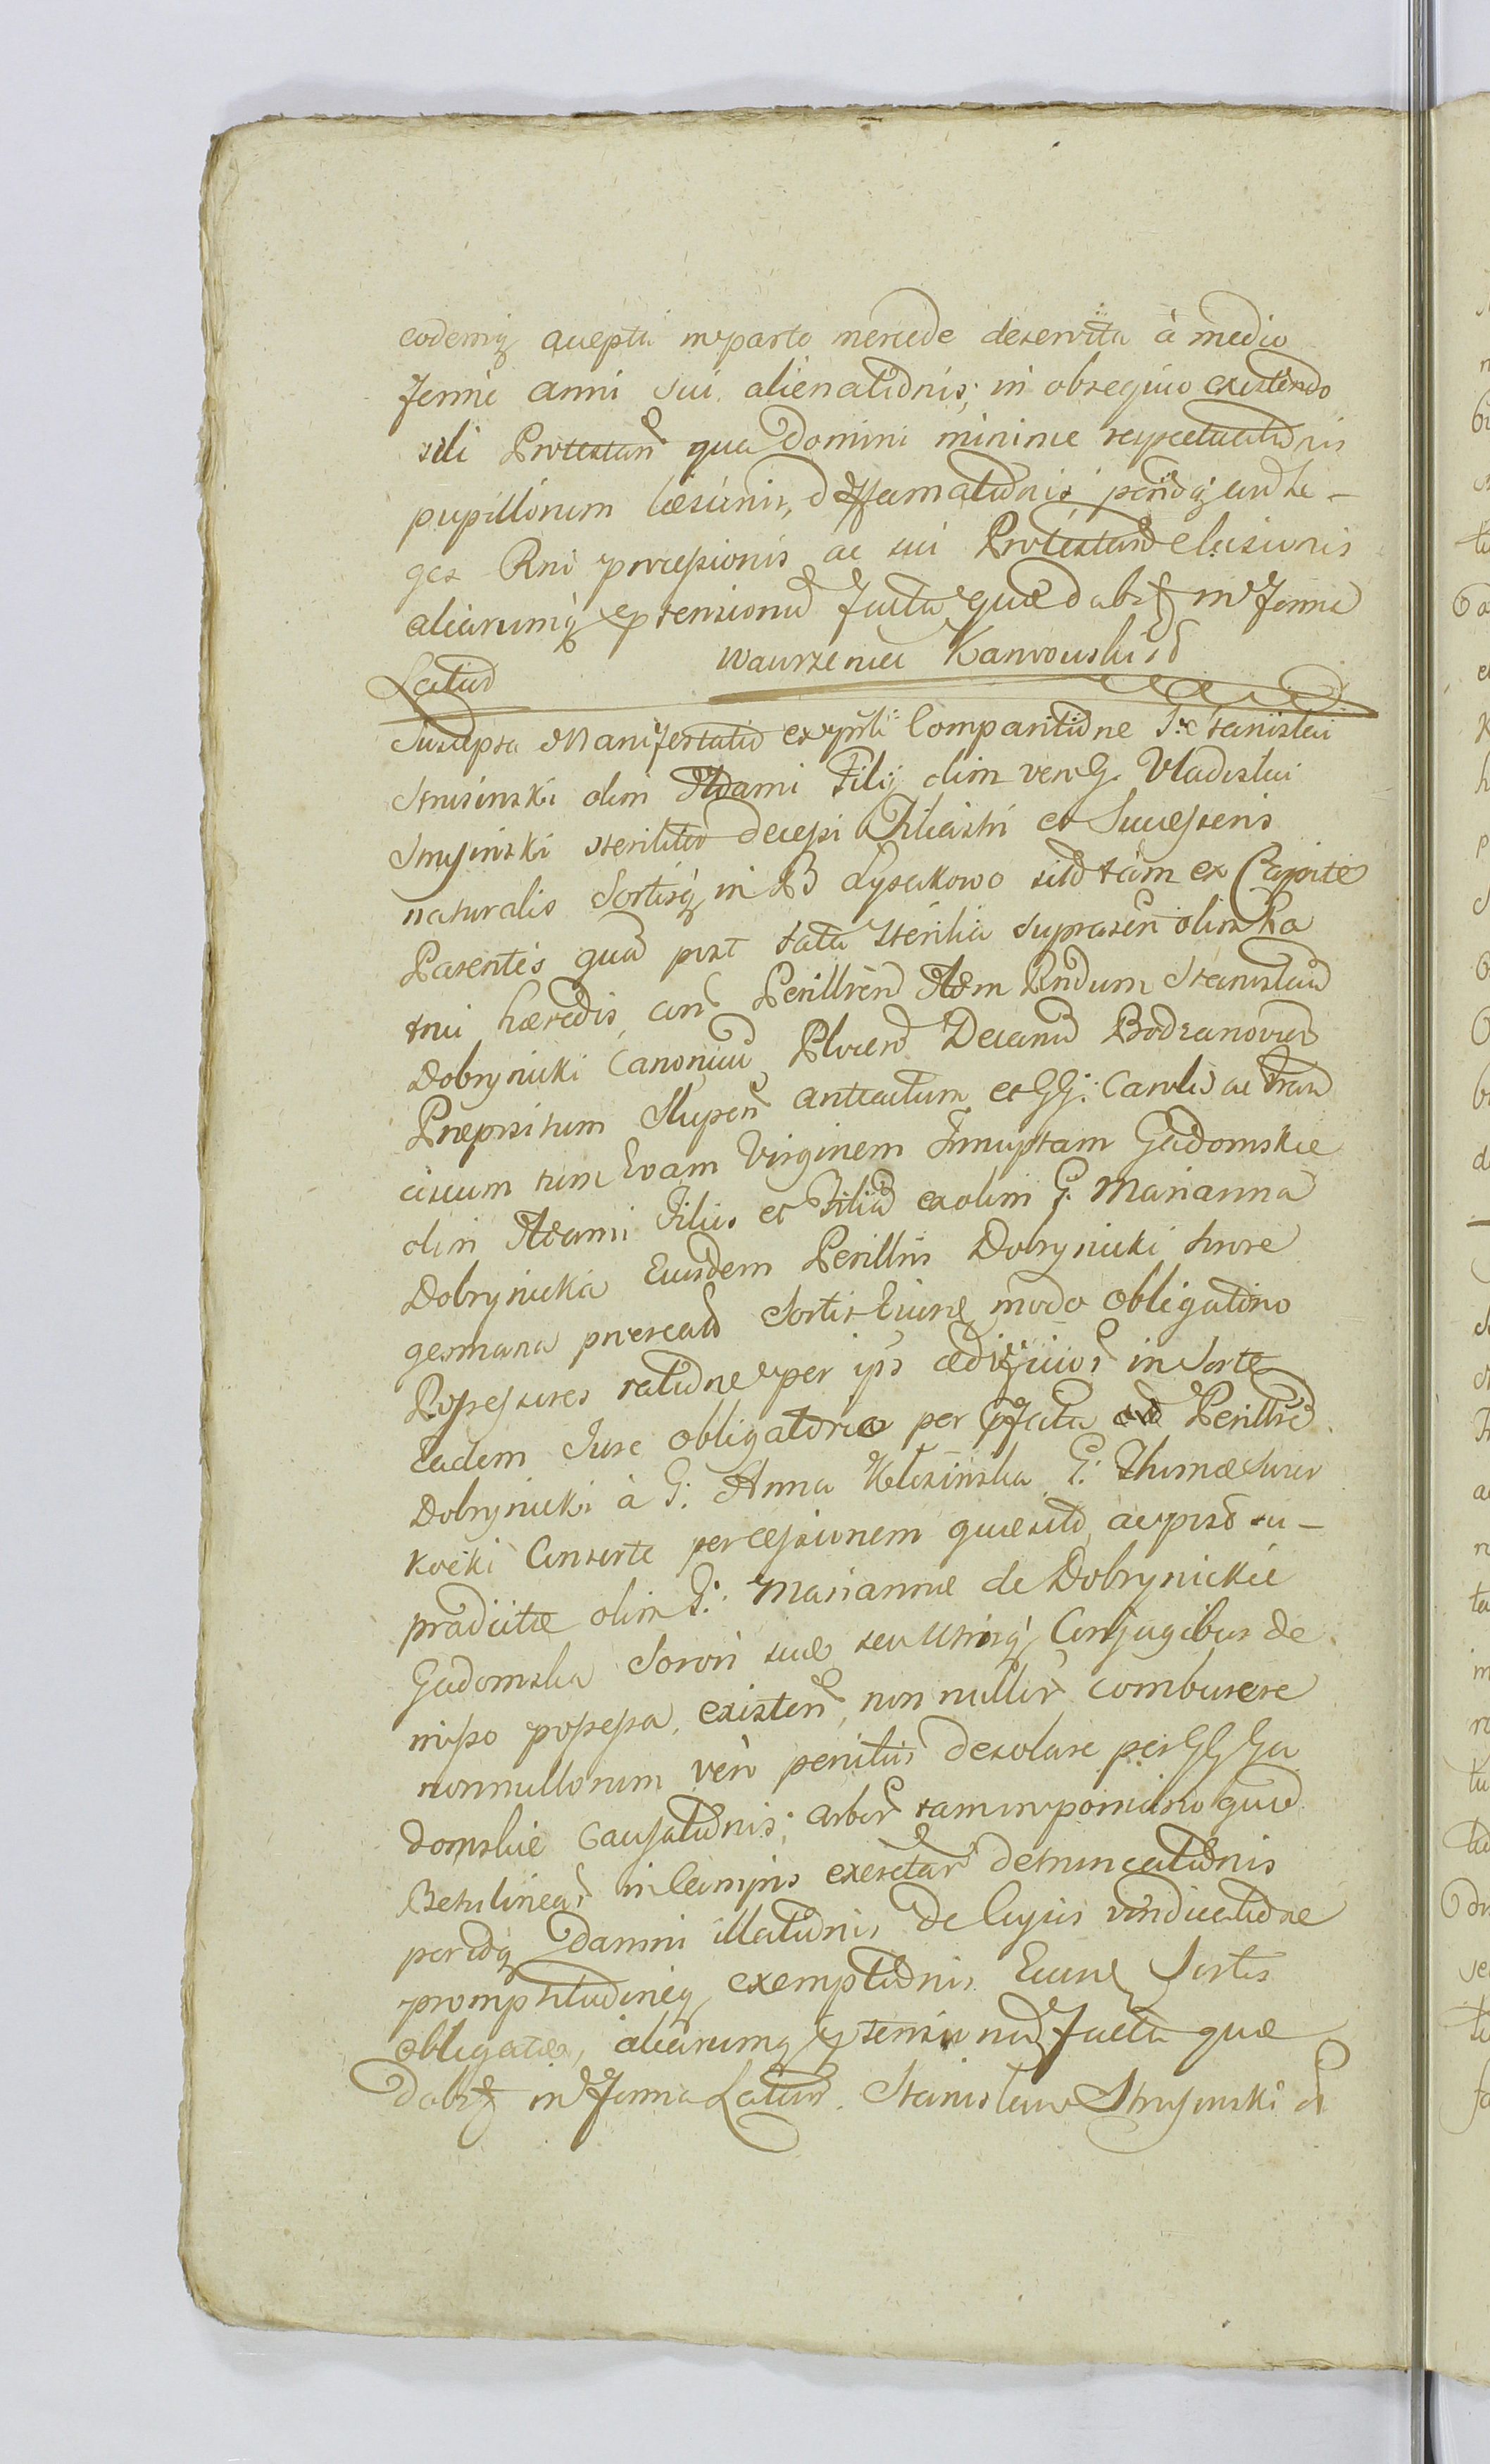 eodemq accepta in parte mercede deservita à medio
ferme anni sui alienationis; in obsequio existendo
sibi Protestan qua Domini minime respectuationis
pupillorum læsionis, deffamationis, peridq
ges Rni processionis ac sui Protestan elusionis
aliarumq prtensionu facta quæ dabit in forma
Latiud Wawrzeniec Karwowski
Suscepta Manifestatio ex psnli Comparitione G: Stanislai
Strusinski olim Adami Filij olim vero G. Vladislai
Strusinski steriliter decessi Filiastri et Successoris
naturalis Sortisq in B Lysakowo sit tam ex Capite
Parentis quam post fata sterilia suprascri olim Pa
trui hæredis, con Perillrem Adm Rndum Stanislaum
Dobrynicki Canonicu Plocen Decanu Bodzanovien
Præpositum Slupen anteactum et GG: Carolu ac Fran
ciscum tum Evam Virginem Innuptam Gadomskie
olim Adami Filios et Filiā ex olim G. Marianna
Dobrynicka Eiusdem Perillris Dobrynicki Sorore
germana procreat Sortis Eiusde modo obligatorio
Possessores ratione per ipso ædificior in Sorte
Eadem Jure obligatorio per præfatu Perillre
Dobrynicki à G: Anna Klisinska G: Thomæ Suser
kocki Consorte per cessionem quæsito, ac post
prædictæ olim G: Mariannæ de Dobrynickie
Gadomska Sorori suæ seu utrisq Conjugibus de
misso possessa, existen, non nullor comburere
nonnullorum vero penitus desolare per GG Ga
domskie causationis; arbor tam in pomario qua
Betulinear in Campis exerctar detruncationis
peridq Damni illationis, de Cujus vindicatione
promptitudineq exemptionis Eiusde Sortis
obligatæ, aliarumq prtensionu facta quæ
dabit in forma Latiud. Stanislaw Strusinski